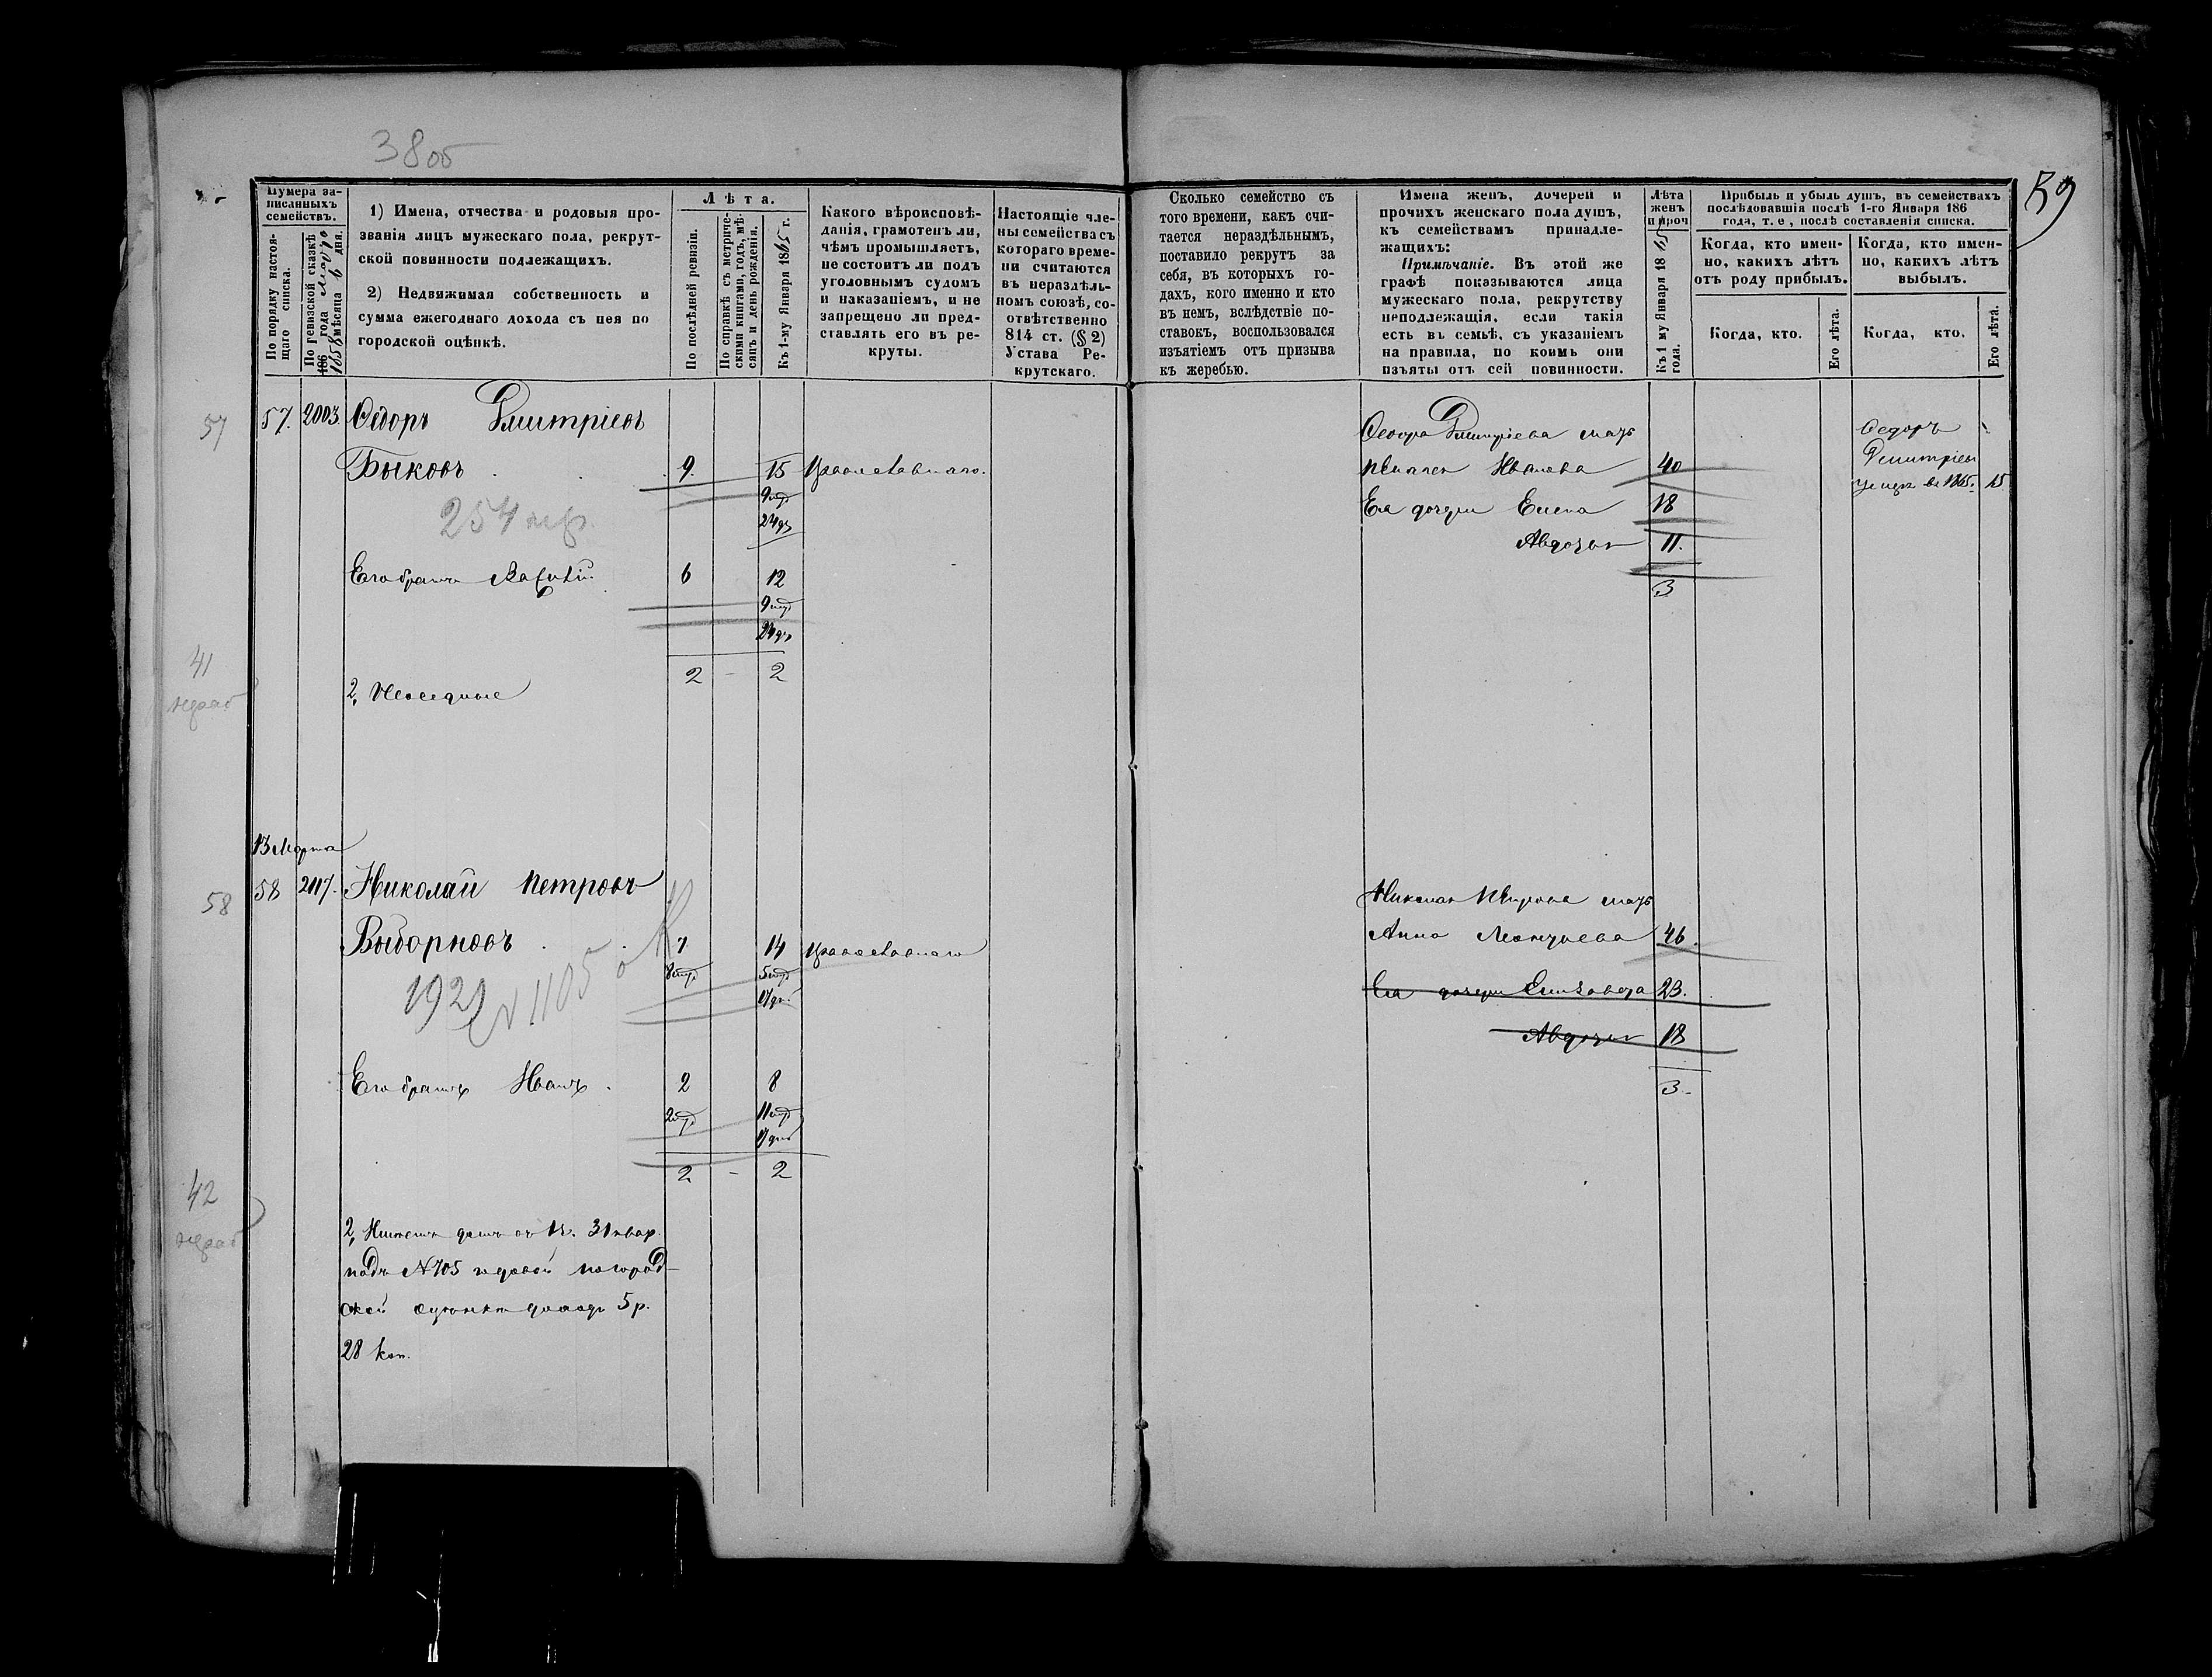 38 об
39
Нумера за-
писанныхъ
семействъ.
По порядку настоя-
щаго списка.
По ревизской сказкѣ
186 года Марта
1858 мѣсяца 9 дня.
1) Имена, отчества и родовыя про-
званія лицъ мужескаго пола, рекрут-
ской повинности подлежащихъ.
2) Недвижимая собственность и
сумма ежегоднаго дохода съ нея по
городской оцѣнкѣ.
Лѣта.
По послѣдней ревизіи.
По справкѣ съ метриче-
скими книгами, годъ, мѣ-
сяцъ и день рожденія.
Къ 1-му Января 1865 г.
Какого вѣроисповѣ-
данія, грамотенъ ли,
чѣмъ промышляетъ,
не состоитъ ли подъ
уголовнымъ судомъ
и наказаніемъ, и не
запрещено ли пред-
ставлять его въ ре-
круты.
Настоящіе чле-
ны семейства съ
котораго време-
ни считаются
въ нераздѣль-
номъ союзѣ, со-
отвѣтственно
814 ст. (§ 2)
Устава Ре-
крутскаго.
Сколько семейство съ
того времени, какъ счи-
тается нераздѣльнымъ,
поставило рекрутъ за
себя, въ которыхъ го-
дахъ, кого именно и кто
въ немъ, вслѣдствіе по-
ставокъ, воспользовался
изъятіемъ отъ призыва
къ жеребью.
Имена женъ, дочерей и
прочихъ женскаго пола душъ,
къ семействамъ принадле-
жащихъ:
Примѣчаніе. Въ этой же
графѣ показываются лица
мужескаго пола, рекрутству
неподлежащія, если такія
есть въ семьѣ, съ указаніемъ
на правила, по коимъ они
изъяты отъ сей повинности.
Лѣта
женъ
и проч
Къ 1 му Января 1865
года.
Прибыль и убыль душъ, въ семействахъ
послѣдовавшія послѣ 1-го Января 186
года, т. е., послѣ составленія списка.
Когда, кто имен-
но, какихъ лѣтъ
отъ роду прибылъ.
Когда, кто имен-
но, какихъ лѣтъ
выбылъ.
Когда, кто.
Его лѣта.
Когда, кто.
Его лѣта.
57
57. 2003. Ѳедоръ Дмитріевъ
Быковъ 9. 15 Православнаго.
9 мѣс
24 дн
254
Его братъ 6 12
9 мѣс
24 дн
2 - 2
41
2, Неседные
Ѳедора Дмитріева мать
Иванова 40
Ея дочери Елена 18
Авдотья 11.
3
Ѳедоръ
Дмитріевъ
умеръ въ 1865. 15
13 Марта
58
58 2117. Николай Петровъ
Выборновъ 7 14 Православнаго
8 мѣс 5 мѣс
17 дн
192 1105
Его братъ Иванъ. 2 8
2 мѣс 11 мѣс
17 дн
2 - 2
42
2, Имѣетъ домъ въ 1 ч. 3 квар.
подъ №705 годовой по город-
ской оцѣнкѣ доходъ 5 р.
28 коп.
Николая Петрова мать
Анна Леонтьева 46.
Ея дочери Елизавета 23.
Авдотья 18
3.